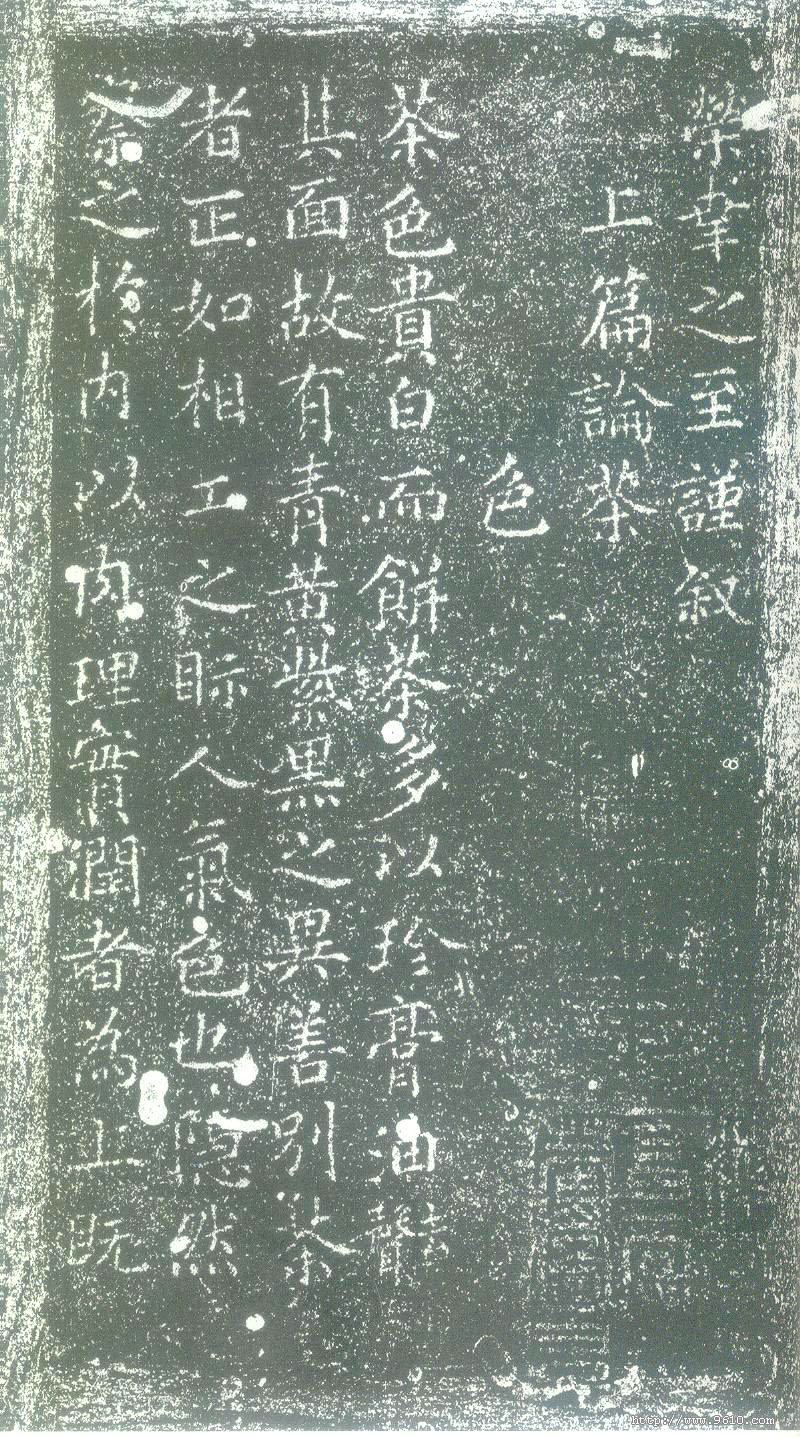 榮幸之至謹叙
上篇論茶
色
茶色貴白而餅茶多以珍膏油
其面故有青黄紫黑之異善别茶
者正如相工之眎人氣色也隠然
察之於内以肉理實潤者為上既
http://www.9610.com